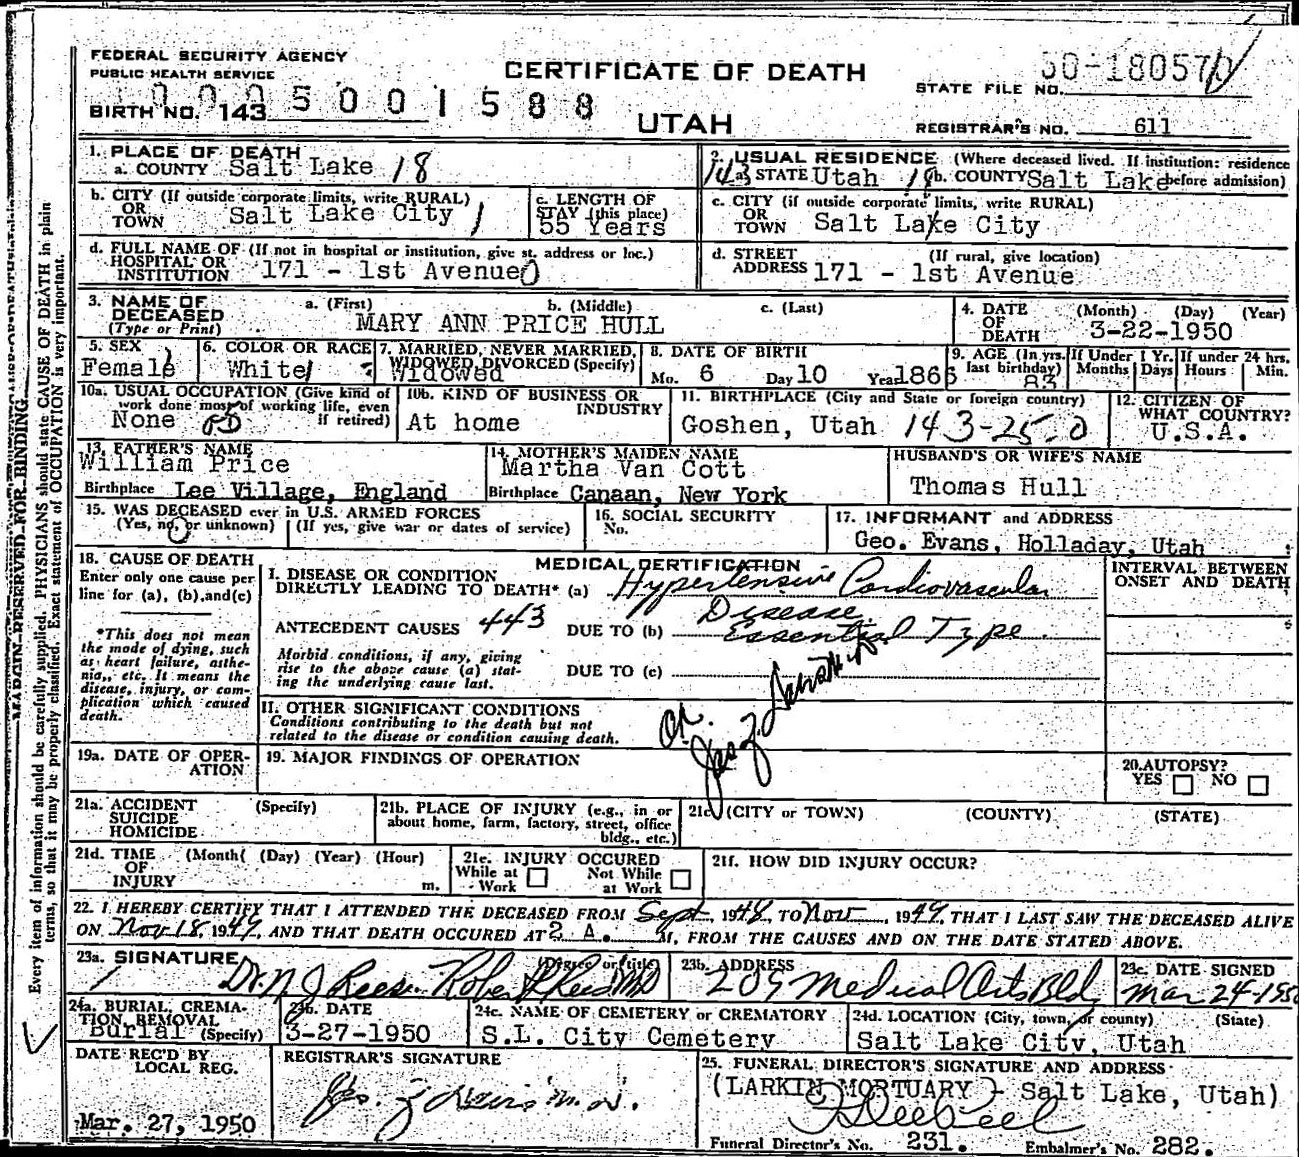 FEDERAL SECURITY AGENCY
PUBLIC HEALTH SERVICE
CERTIFICATE OF DEATH
STATE FILE NO. 50-18057
0005001588
BIRTH NO. 143
UTAH
REGISTRAR'S NO. 611
1. PLACE OF DEATH
a. COUNTY Salt Lake 18
2. USUAL RESIDENCE (Where deceased lived. If institution: residence before admission)
143 a. STATE Utah 18 b. COUNTY Salt Lake
b. CITY (If outside corporate limits, write RURAL)
OR TOWN Salt Lake City 1
c. LENGTH OF STAY (this place)
55 Years
c. CITY (if outside corporate limits, write RURAL)
OR TOWN Salt Lake City
d. FULL NAME OF (If not in hospital or institution, give st. address or loc.)
HOSPITAL OR INSTITUTION 171 - 1st Avenue 0
d. STREET ADDRESS (If rural, give location)
171 - 1st Avenue
3. NAME OF DECEASED (Type or Print)
a. (First) b. (Middle) c. (Last)
MARY ANN PRICE HULL
4. DATE OF DEATH (Month) (Day) (Year)
3-22-1950
5. SEX
Female
6. COLOR OR RACE
White
7. MARRIED, NEVER MARRIED, WIDOWED, DIVORCED (Specify)
Widowed
8. DATE OF BIRTH
Mo. 6 Day 10 Year 1866
9. AGE (In yrs. last birthday) 83
If Under 1 Yr. Months Days
If under 24 hrs. Hours Min.
10a. USUAL OCCUPATION (Give kind of work done most of working life, even if retired)
None
10b. KIND OF BUSINESS OR INDUSTRY
At home
11. BIRTHPLACE (City and State or foreign country)
Goshen, Utah 143-25-0
12. CITIZEN OF WHAT COUNTRY?
U.S.A.
13. FATHER'S NAME
William Price
Birthplace Lee Village, England
14. MOTHER'S MAIDEN NAME
Martha Van Cott
Birthplace Canaan, New York
HUSBAND'S OR WIFE'S NAME
Thomas Hull
15. WAS DECEASED ever in U.S. ARMED FORCES
(Yes, no, or unknown) (If yes, give war or dates of service)
16. SOCIAL SECURITY No.
17. INFORMANT and ADDRESS
Geo. Evans, Holladay, Utah
18. CAUSE OF DEATH
Enter only one cause per line for (a), (b), and (c)
*This does not mean the mode of dying, such as heart failure, asthenia, etc. It means the disease, injury, or complication which caused death.
MEDICAL CERTIFICATION
INTERVAL BETWEEN ONSET AND DEATH
I. DISEASE OR CONDITION DIRECTLY LEADING TO DEATH* (a) Hypertensive Cardiovascular
Disease
ANTECEDENT CAUSES 443 DUE TO (b) Essential Type
Morbid conditions, if any, giving rise to the above cause (a) stating the underlying cause last.
DUE TO (c)
II. OTHER SIGNIFICANT CONDITIONS
Conditions contributing to the death but not related to the disease or condition causing death.
19a. DATE OF OPERATION
19. MAJOR FINDINGS OF OPERATION
20. AUTOPSY?
YES NO
21a. ACCIDENT SUICIDE HOMICIDE (Specify)
21b. PLACE OF INJURY (e.g., in or about home, farm, factory, street, office bldg., etc.)
21c. (CITY or TOWN) (COUNTY) (STATE)
21d. TIME OF INJURY (Month) (Day) (Year) (Hour) m.
21e. INJURY OCCURED
While at Work Not While at Work
21f. HOW DID INJURY OCCUR?
22. I HEREBY CERTIFY THAT I ATTENDED THE DECEASED FROM Sept, 1948, TO Nov, 1949, THAT I LAST SAW THE DECEASED ALIVE
ON Nov 18, 1949, AND THAT DEATH OCCURED AT 2 A. M, FROM THE CAUSES AND ON THE DATE STATED ABOVE.
23a. SIGNATURE (Degree or title)
23b. ADDRESS
209 Medical Arts Bldg
23c. DATE SIGNED
Mar 24-1950
24a. BURIAL, CREMATION, REMOVAL (Specify)
Burial
24b. DATE
3-27-1950
24c. NAME OF CEMETERY or CREMATORY
S.L. City Cemetery
24d. LOCATION (City, town, or county) (State)
Salt Lake City, Utah
DATE REC'D BY LOCAL REG.
Mar. 27, 1950
REGISTRAR'S SIGNATURE
25. FUNERAL DIRECTOR'S SIGNATURE AND ADDRESS
(LARKIN MORTUARY - Salt Lake, Utah)
Funeral Director's No. 231. Embalmer's No. 282.
MARGIN RESERVED FOR BINDING
Every item of information should be carefully supplied. PHYSICIANS should state CAUSE OF DEATH in plain
terms, so that it may be properly classified. Exact statement of OCCUPATION is very important.